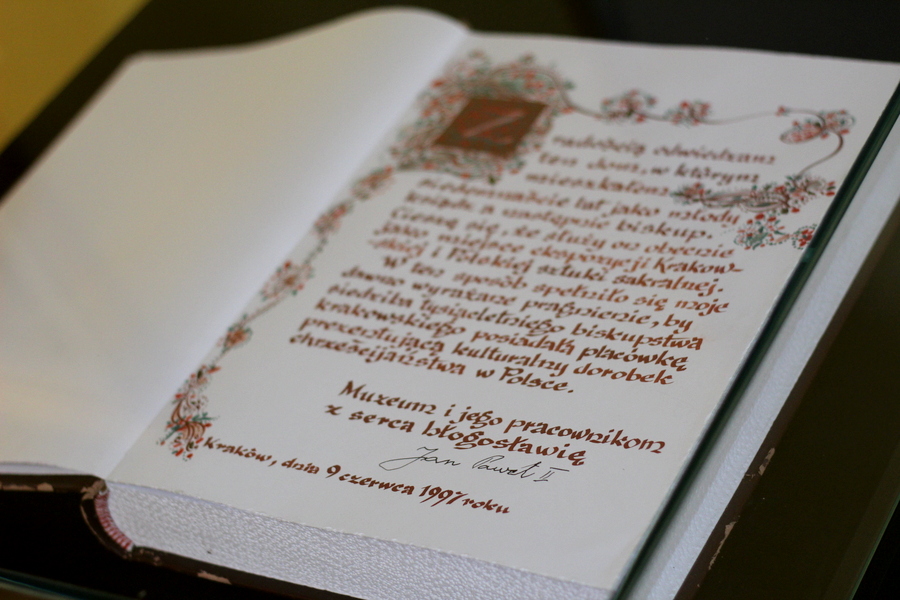 Z radością odwiedzam
ten dom, w którym
mieszkałem
siedemnaście lat jako młody
ksiądz a następnie biskup.
Cieszę się, że służy on obecnie
jako miejsce ekspozycji Krakow-
skiej i Polskiej sztuki sakralnej.
W ten sposób spełniło się moje
dawno wyrażane pragnienie, by
siedziba tysiącletniego biskupstwa
krakowskiego posiadała placówkę
prezentującą kulturalny dorobek
chrześcijaństwa w Polsce.
Muzeum i jego pracownikom
z serca błogosławię
Jan Paweł II
Kraków, dnia 9 czerwca 1997 roku